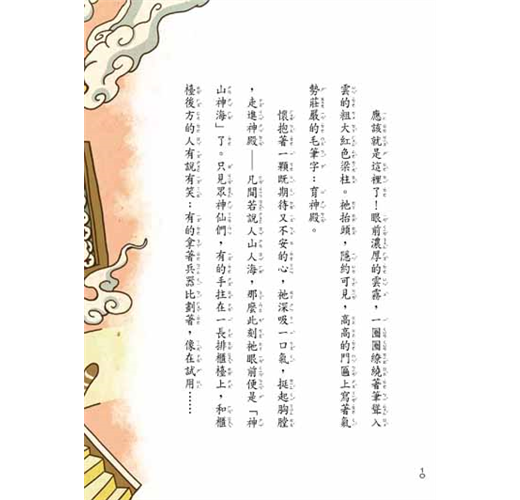 應該就是這裡了!眼前濃厚的雲霧,一圈圈繚繞著聳入
雲的粗大紅色梁柱。祂抬頭,隱約可見,高高的門匾上寫著氣
勢莊嚴的毛筆字:育神殿。
懷抱著一顆既期待又不安的心,祂深吸一口氣,挺起胸膛
,走進神殿——凡間若說人山人海,那麼此刻祂眼前便是「神
山神海」了。只見眾神仙們,有的手拄在一長排櫃檯上,和櫃
檯後方的人有說有笑;有的拿著兵器比劃著,像在試用……
10